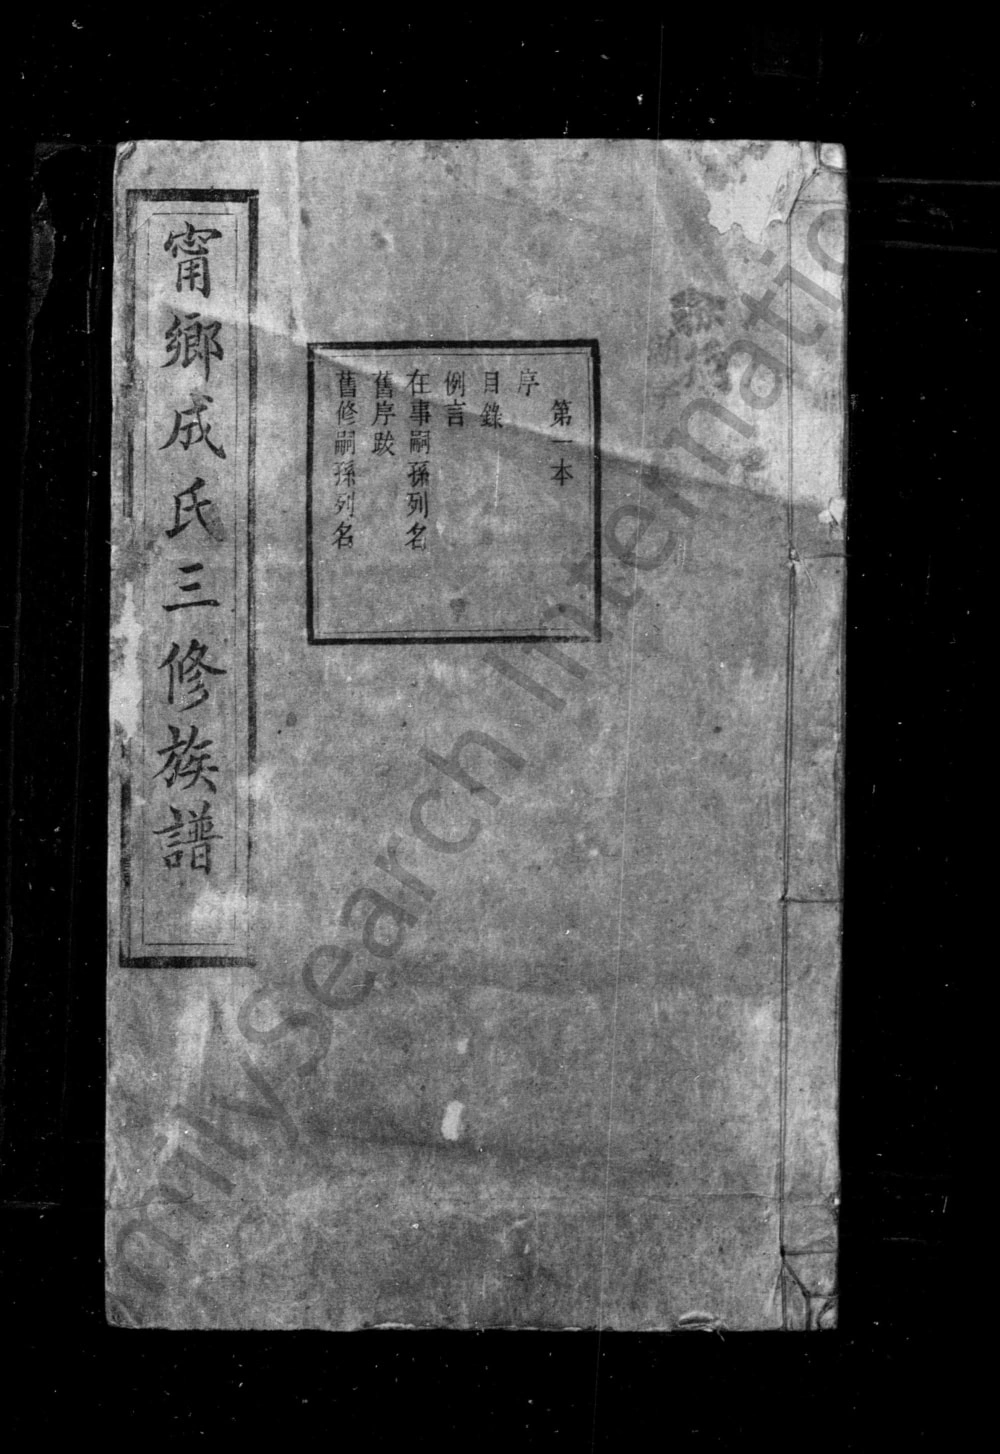 第一本
序
目錄
例言
在事嗣孫列名
舊序跋
舊修嗣孫列名
甯鄉成氏三修族譜
milySearch Internatio